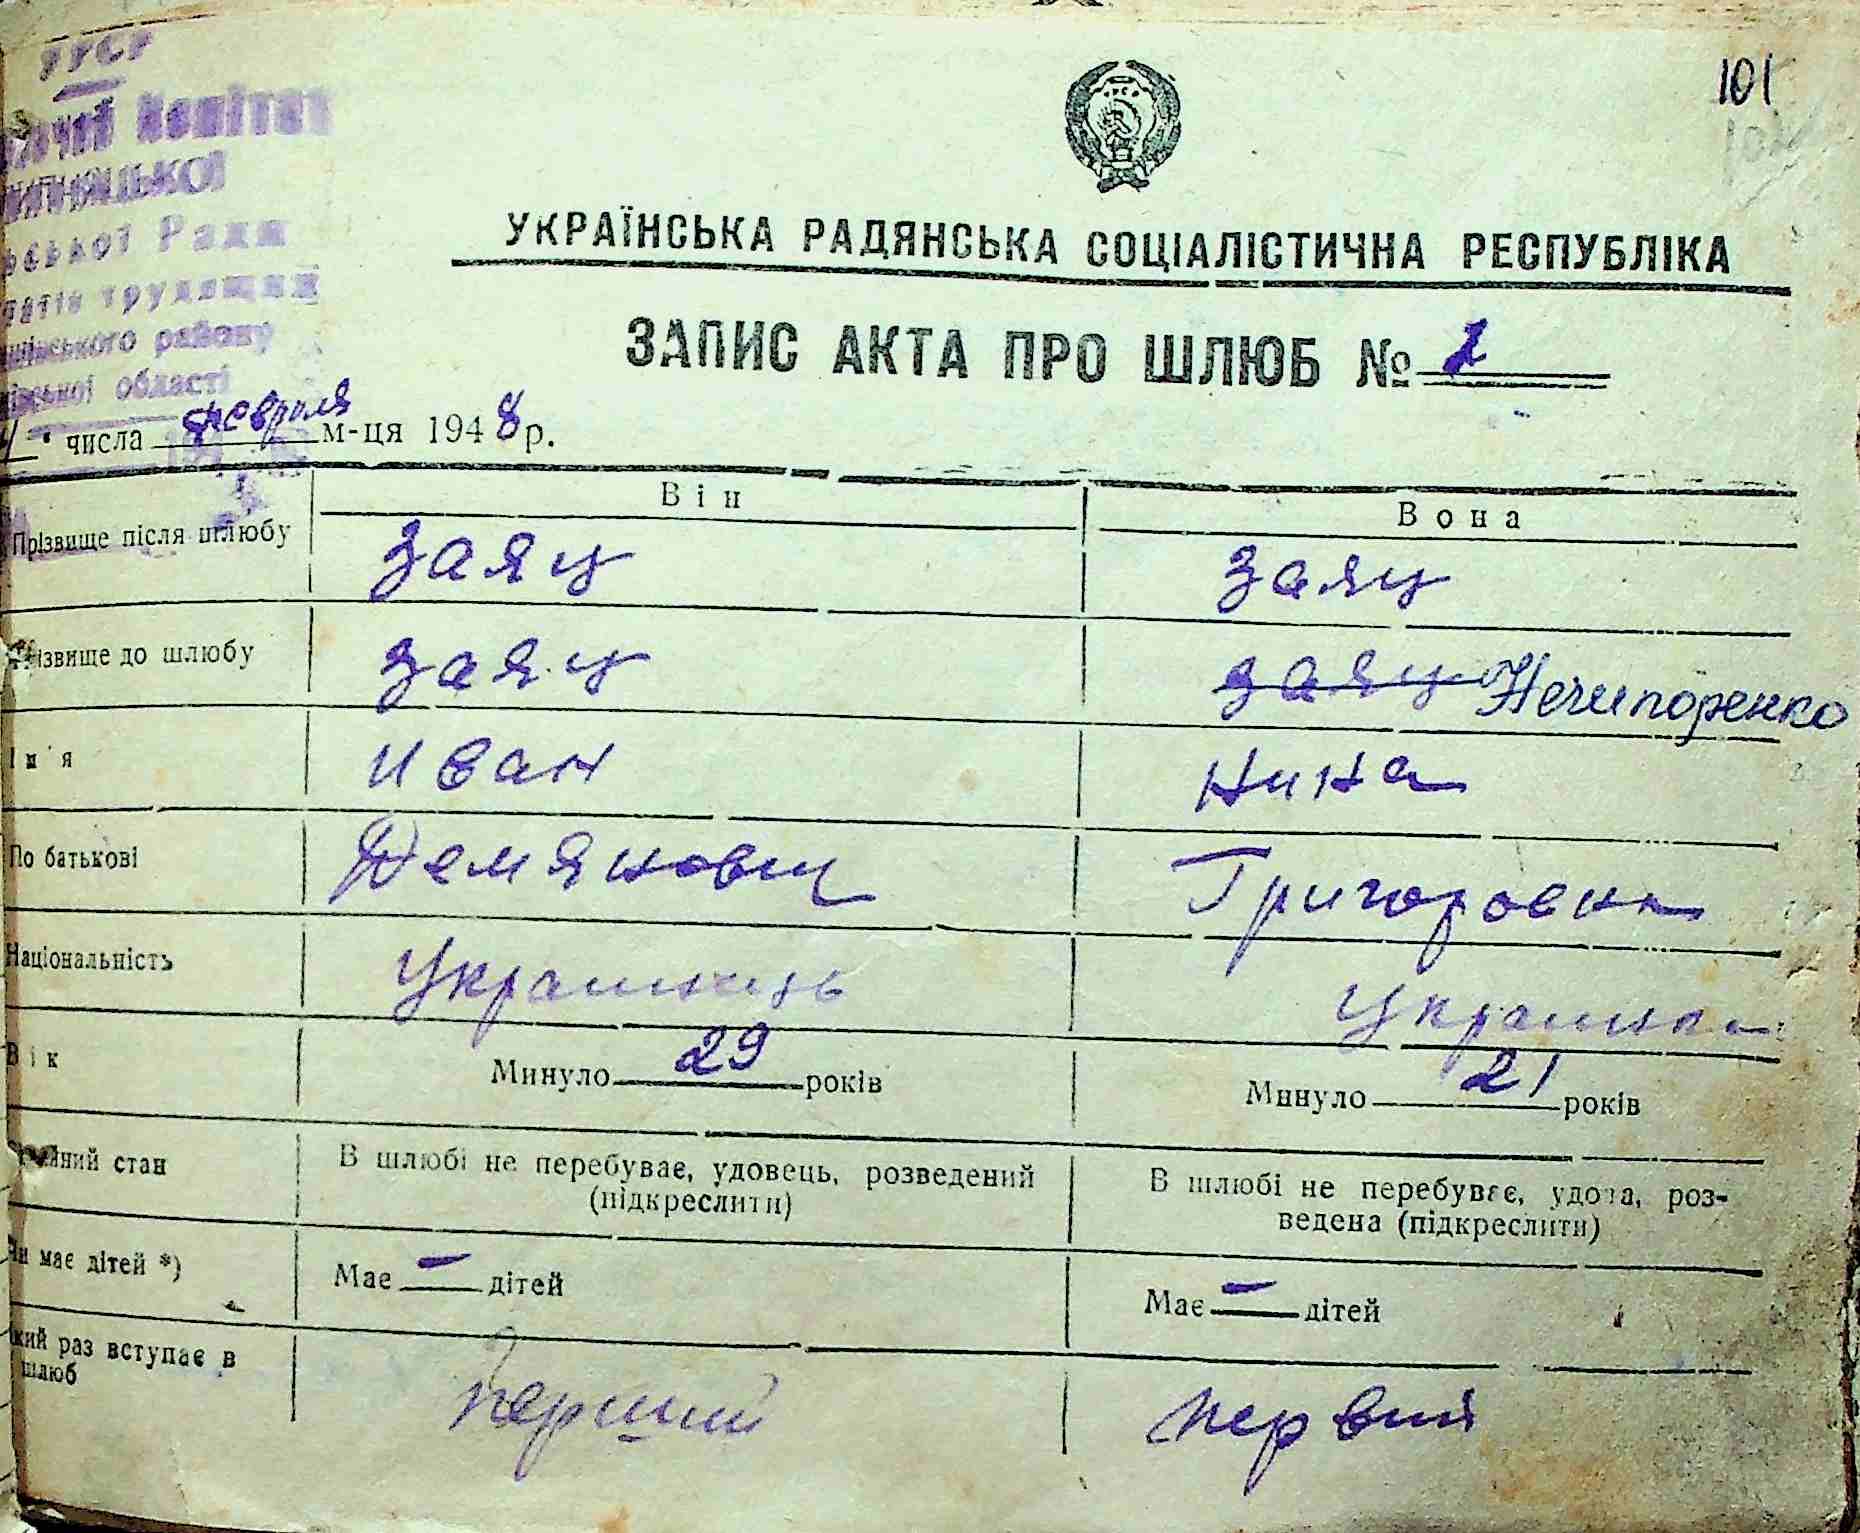 УРСР
101
Комітет
ської Ради
трудящих
ського району
області
УКРАЇНСЬКА РАДЯНСЬКА СОЦІАЛІСТИЧНА РЕСПУБЛІКА
ЗАПИС АКТА ПРО ШЛЮБ № 2
числа февраля м-ця 1948 р.
Він Вона
Прізвище після шлюбу Заяц Заяц
ізвище до шлюбу Заяц Заяц Нечипоренко
Ім'я Иван Нина
По батькові Демянович Григоровна
Національність Украинець Украинка
Вік Минуло 29 років Минуло 21 років
йний стан В шлюбі не перебуває, удовець, розведений В шлюбі не перебуває, удова, роз-
(підкреслити) ведена (підкреслити)
Чи має дітей *) Має — дітей Має — дітей
кий раз вступає в
шлюб перший первий